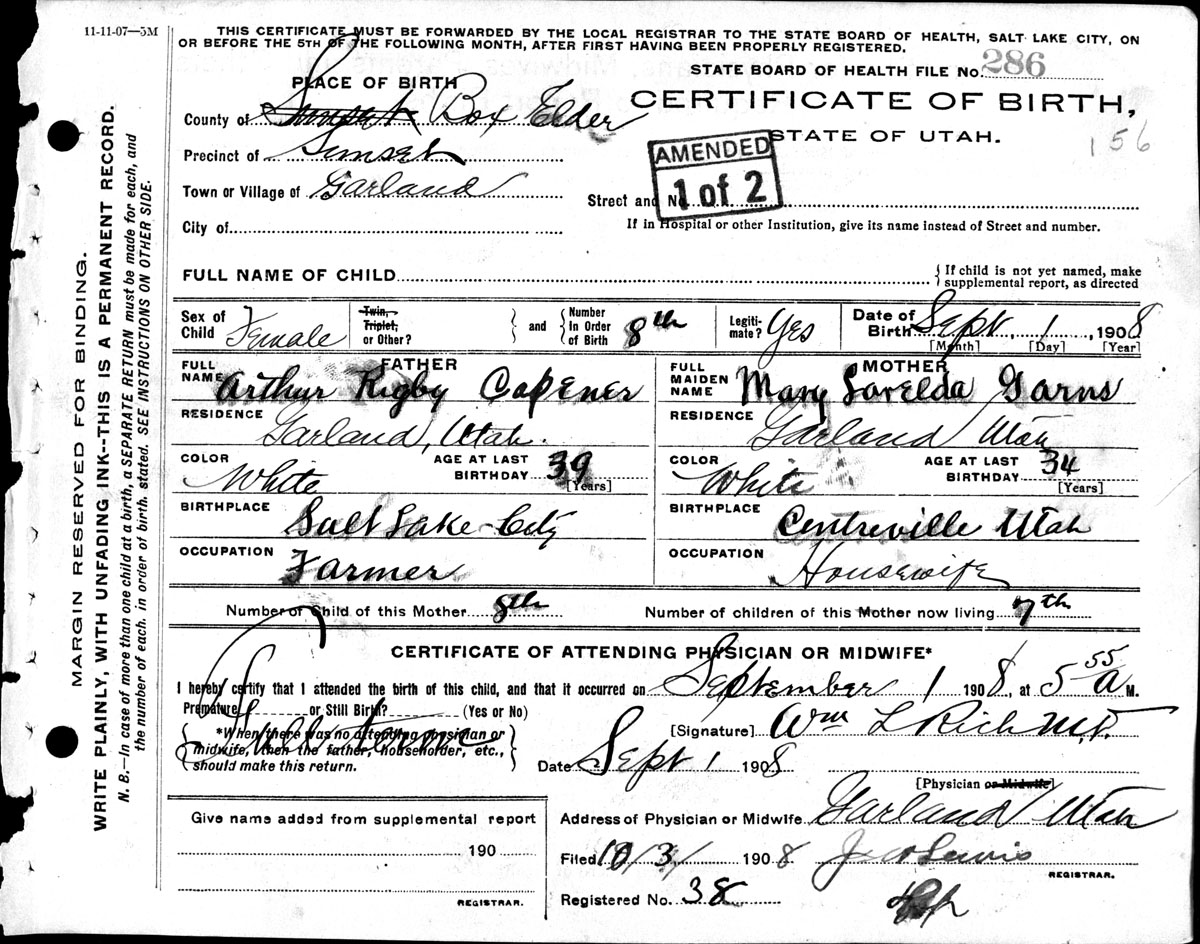 11-11-07—5M
THIS CERTIFICATE MUST BE FORWARDED BY THE LOCAL REGISTRAR TO THE STATE BOARD OF HEALTH, SALT LAKE CITY, ON
OR BEFORE THE 5TH OF THE FOLLOWING MONTH, AFTER FIRST HAVING BEEN PROPERLY REGISTERED.
STATE BOARD OF HEALTH FILE No. 286
PLACE OF BIRTH
CERTIFICATE OF BIRTH,
STATE OF UTAH.
156
County of Box Elder
Precinct of Sunset
Town or Village of Garland
City of
AMENDED
1 of 2
Street and No.
If in Hospital or other Institution, give its name instead of Street and number.
FULL NAME OF CHILD
{ If child is not yet named, make
supplemental report, as directed
Sex of Child Female
Twin, Triplet, or Other? } and { Number In Order of Birth 8th
Legiti-mate? Yes
Date of Birth Sept 1 1908
[Month] [Day] [Year]
FATHER
FULL NAME Arthur Rigby Capener
RESIDENCE
Garland, Utah.
COLOR White AGE AT LAST BIRTHDAY 39
[Years]
BIRTHPLACE
Salt Lake City
OCCUPATION
Farmer
MOTHER
FULL MAIDEN NAME Mary Lovelda Garns
RESIDENCE
Garland Utah
COLOR White AGE AT LAST BIRTHDAY 34
[Years]
BIRTHPLACE
Centreville Utah
OCCUPATION
Housewife
Number of Child of this Mother 8th Number of children of this Mother now living 7th
CERTIFICATE OF ATTENDING PHYSICIAN OR MIDWIFE*
I hereby certify that I attended the birth of this child, and that it occurred on September 1 1908, at 5 55 a M.
Premature or Still Birth? (Yes or No)
*When there was no attending physician or
midwife, then the father, householder, etc.,
should make this return.
[Signature] Wm L Rich M.D.
Date Sept 1 1908
[Physician or Midwife]
Address of Physician or Midwife Garland Utah
Filed 10/3/ 1908 Lewis
REGISTRAR.
Registered No. 38
Give name added from supplemental report
190
REGISTRAR.
MARGIN RESERVED FOR BINDING.
WRITE PLAINLY, WITH UNFADING INK--THIS IS A PERMANENT RECORD.
N. B.—In case of more than one child at a birth, a SEPARATE RETURN must be made for each, and
the number of each, in order of birth, stated. SEE INSTRUCTIONS ON OTHER SIDE.